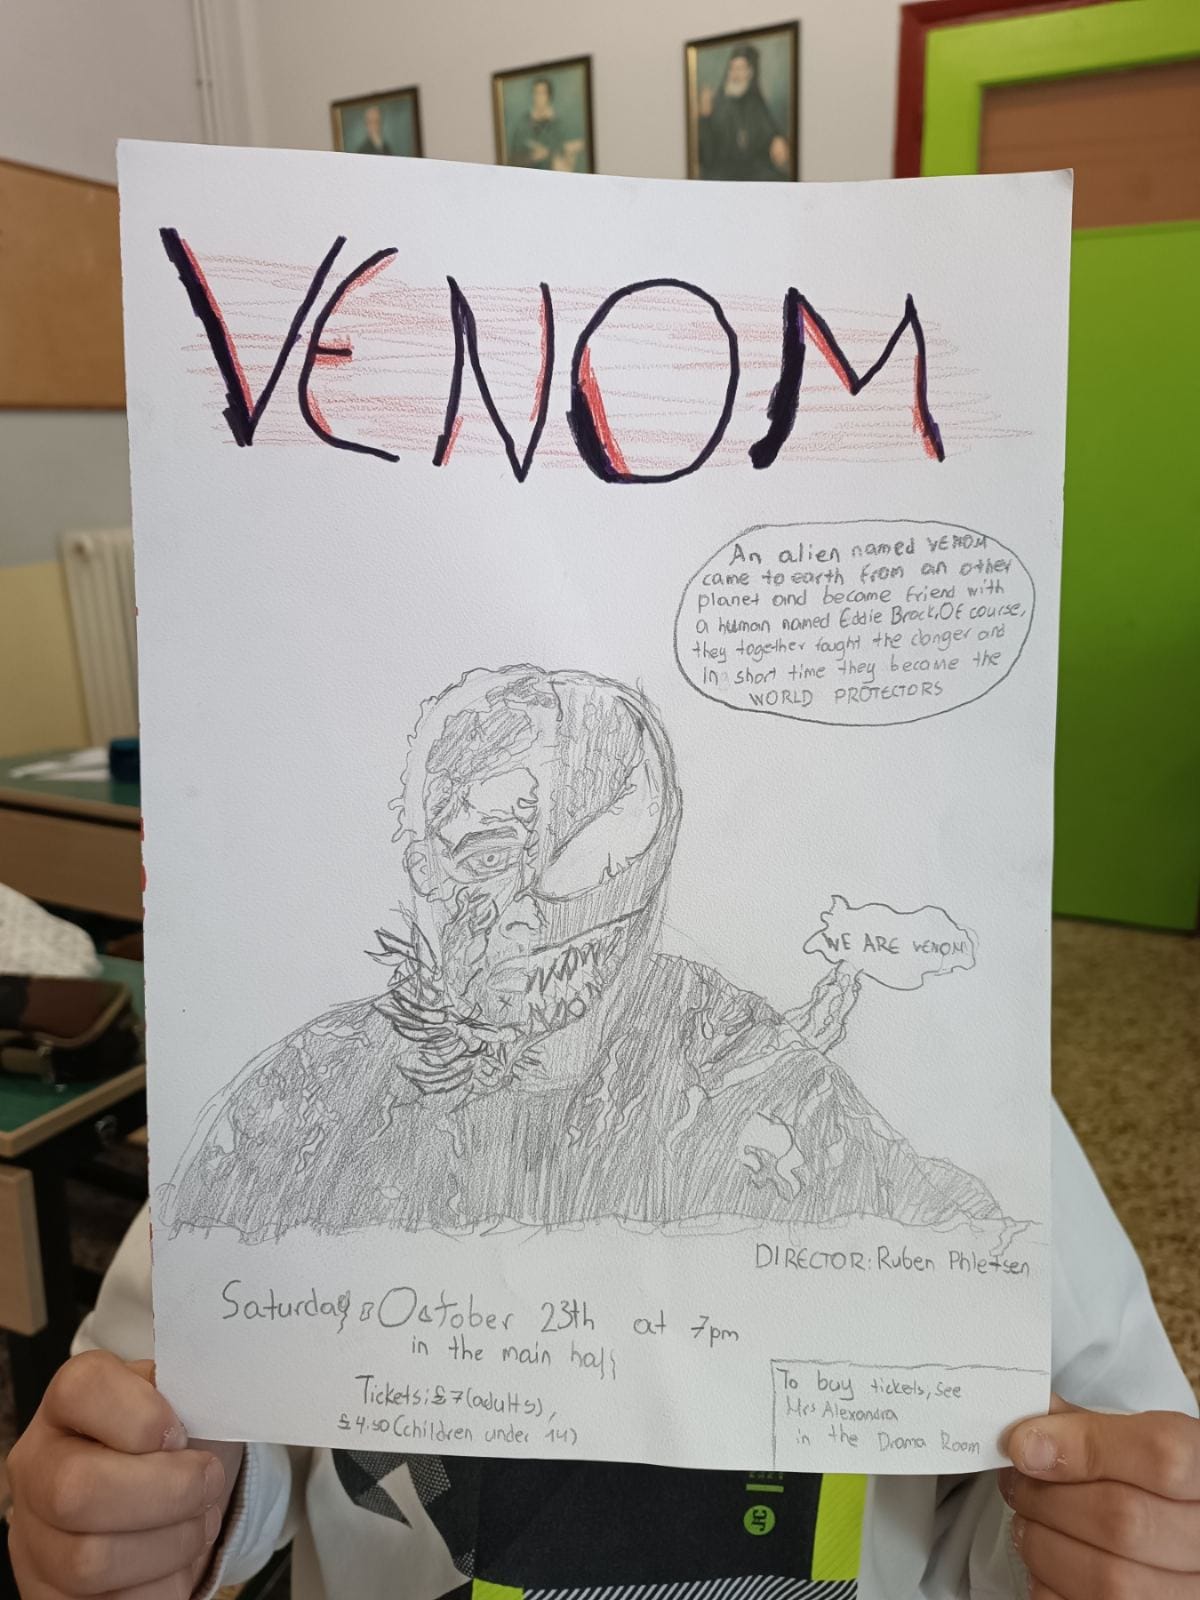 VENOM
An alien named VENOM
came to earth from an other
planet and became friend with
a human named Eddie Brock. Of course,
they together fought the danger and
In short time they became the
WORLD PROTECTORS
WE ARE VENOM
DIRECTOR: Ruben Phletsen
Saturday October 23th at 7pm
in the main hall
Tickets: £7 (adults),
£4.50 (children under 14)
To buy tickets, see
Mrs Alexandra
in the Drama Room